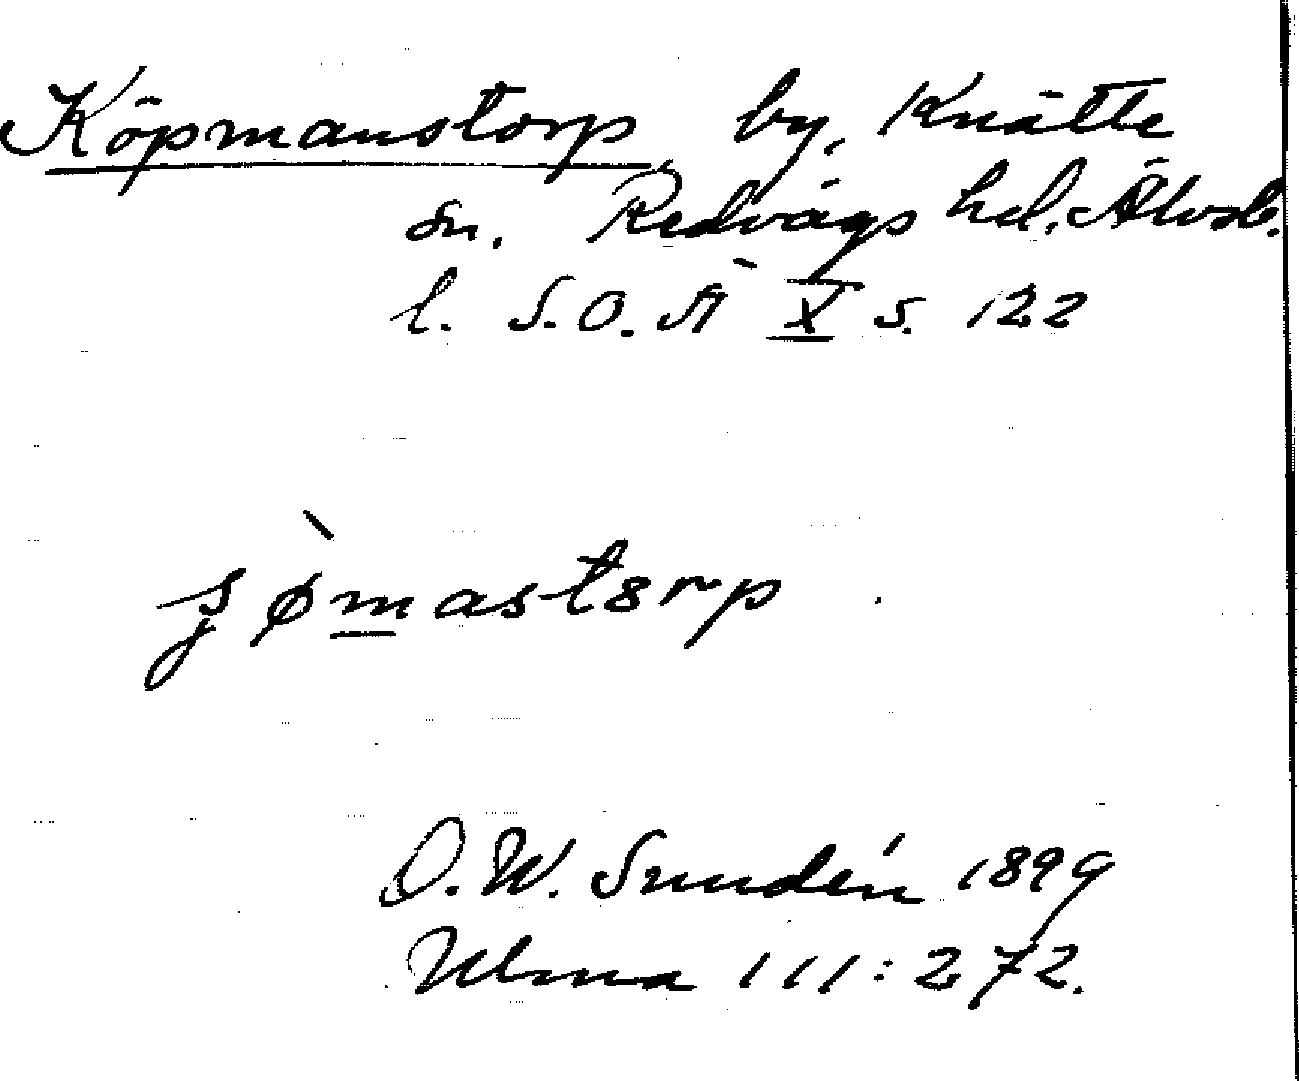 Köpmanstorp by, Knätte
sn. Redvägs hd. Älvsb.
l. S.O.Ä X s. 122
mastorp
D. W. Sundén 1899
Ulma 111:272.